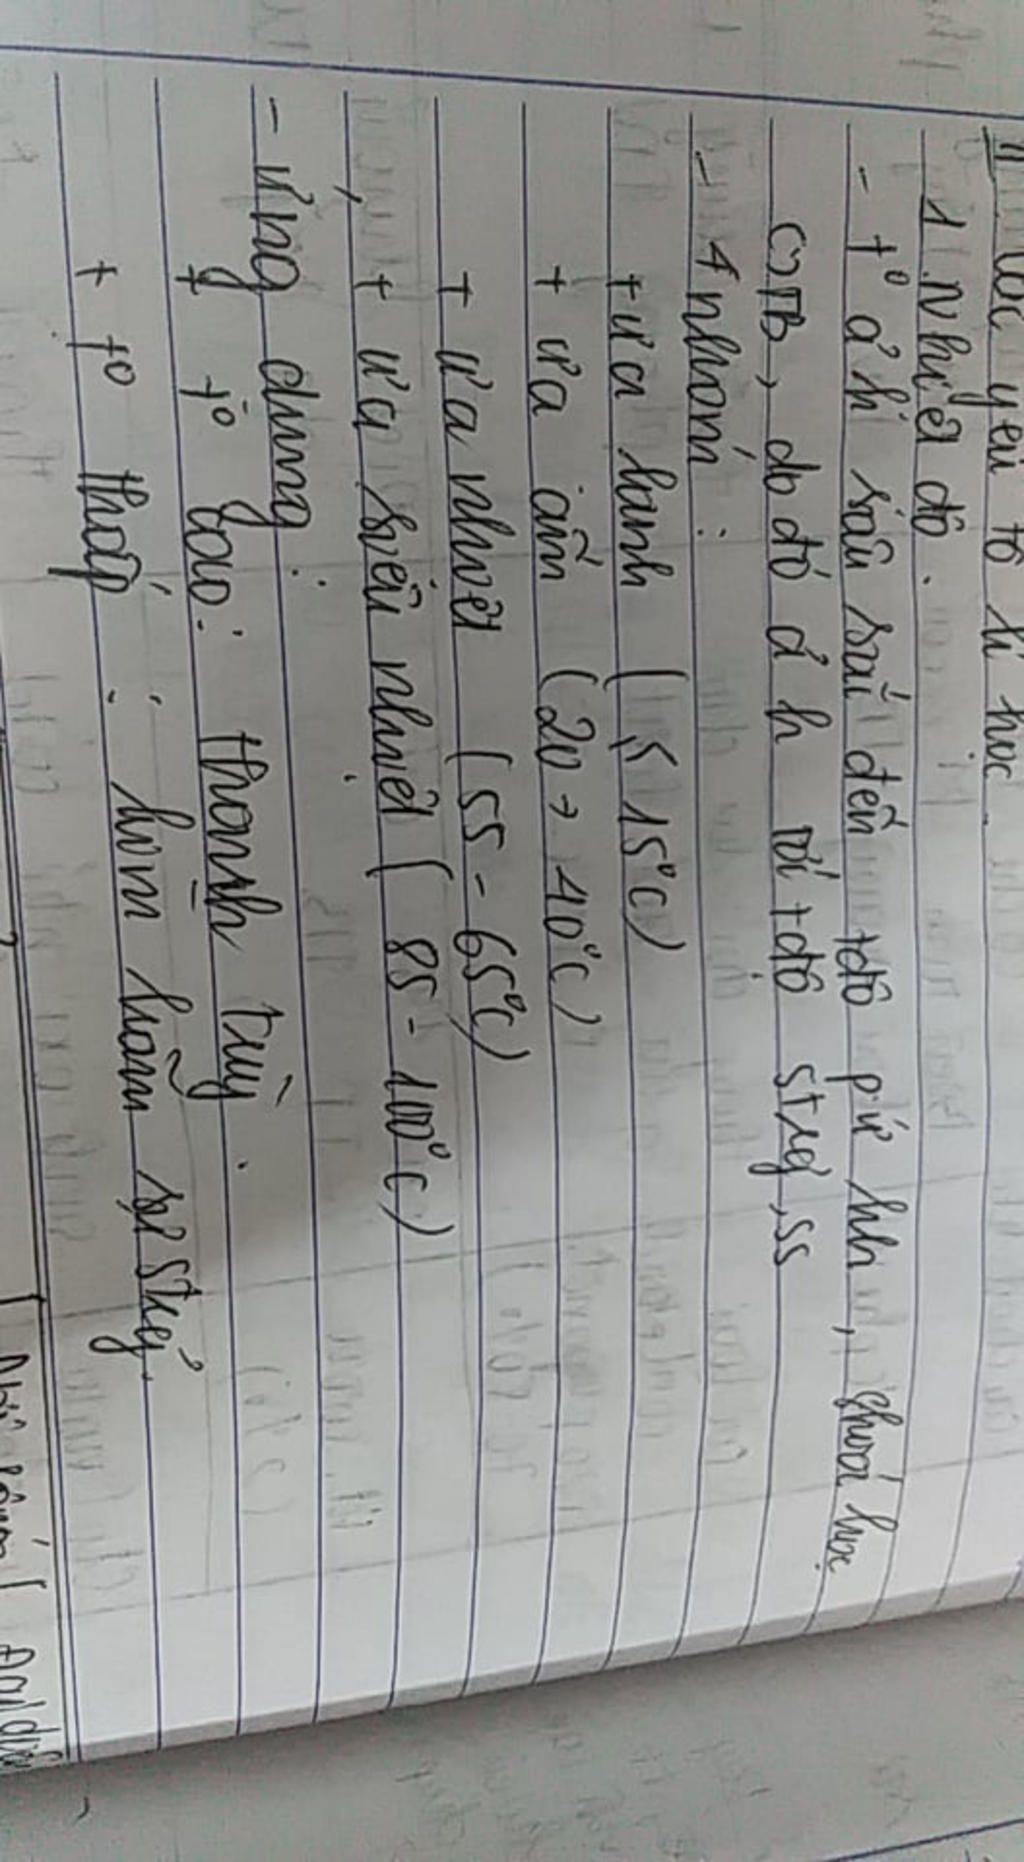 yếu tố lí học.
1. Nhiệt độ.
- t° a'h sâu sắc đến tđộ pứ hh, shoá học
CSTB, do đó a'h tới tđộ strg', ss
- 4 nhóm :
+ ưa lạnh (≤ 15°C)
+ ưa ấm (20 → 40°C)
+ ưa nhiệt (55 - 65°C)
+ ưa siêu nhiệt (85 - 100°C)
- Ứng dụng :
+ t° cao: thanh trùng.
+ t° thấp : kìm hãm sự strg'.